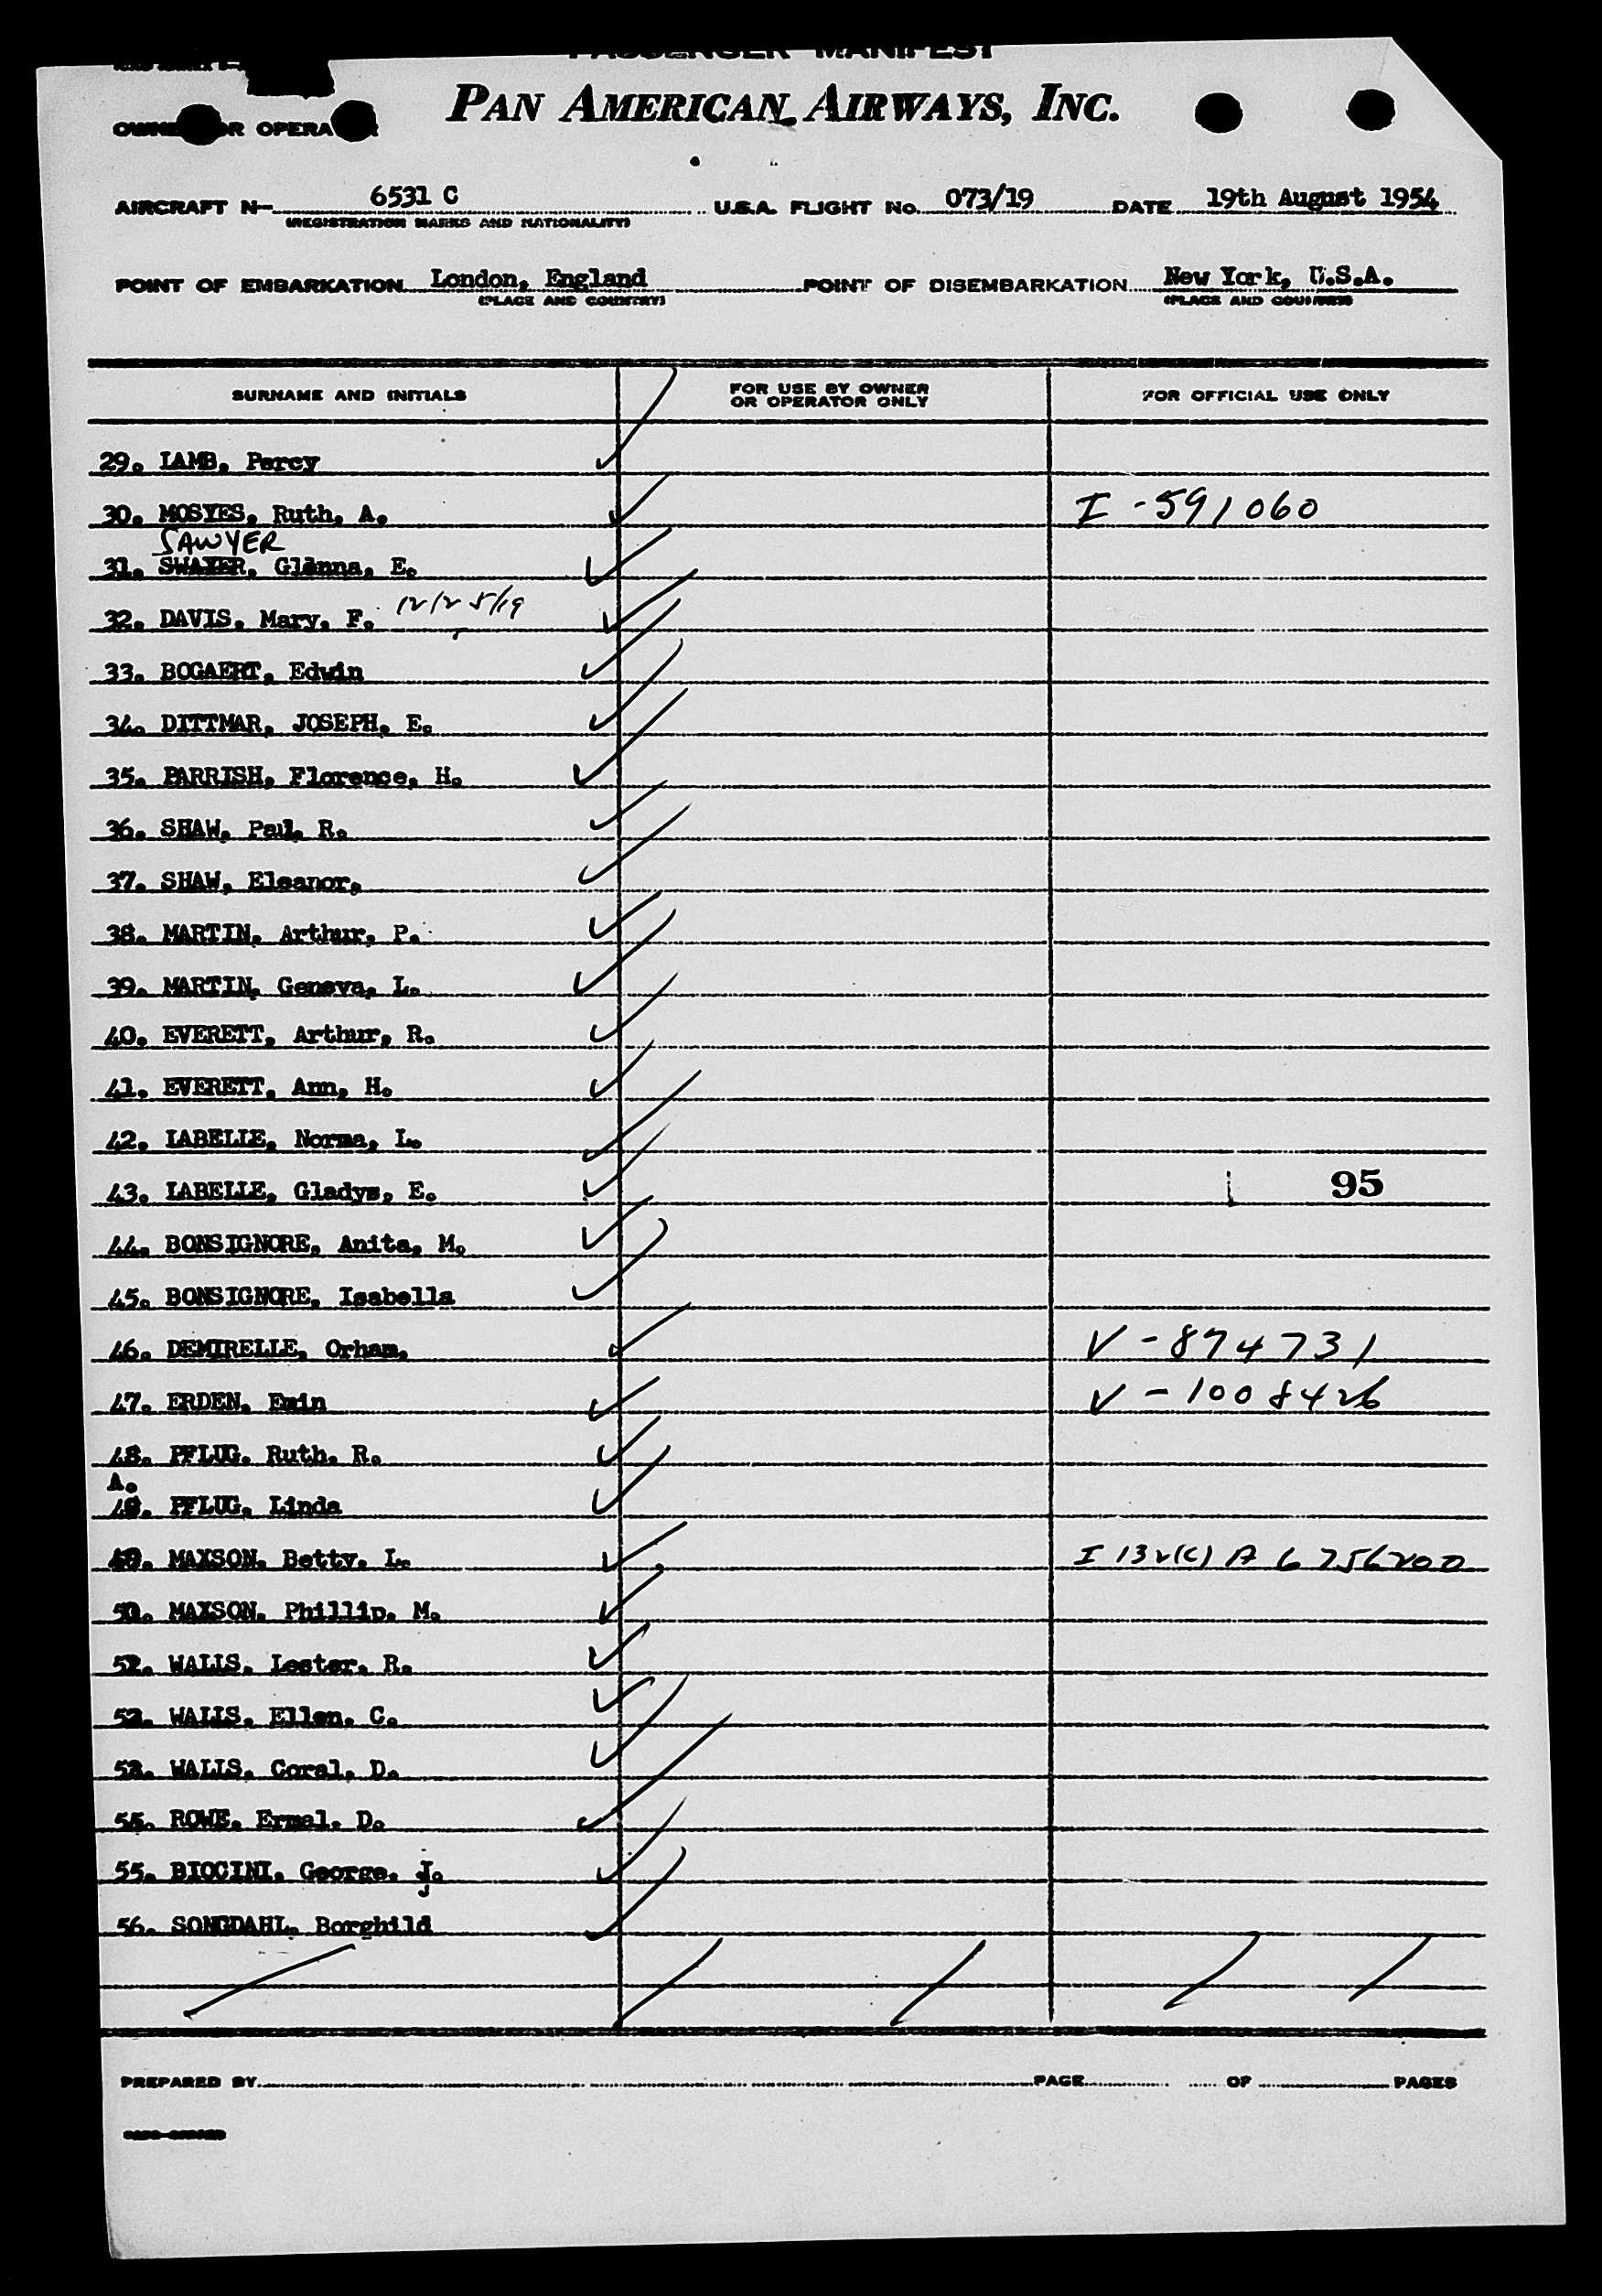 PASSENGER MANIFEST
PAN AMERICAN AIRWAYS, INC.
OWNER OR OPERATOR
AIRCRAFT N- 6531 C U.S.A. FLIGHT No. 073/19 DATE 19th August 1954
(REGISTRATION MARKS AND NATIONALITY)
POINT OF EMBARKATION London, England POINT OF DISEMBARKATION New York, U.S.A.
(PLACE AND COUNTRY) (PLACE AND COUNTRY)
SURNAME AND INITIALS FOR USE BY OWNER OR OPERATOR ONLY FOR OFFICIAL USE ONLY
29. LAMB, Percy
30. MOSYES, Ruth, A. I - 591060
SAWYER
31. SWAYER, Glenna, E.
32. DAVIS, Mary, F. 12/25/19
33. BOGAERT, Edwin
34. DITTMAR, JOSEPH, E.
35. PARRISH, Florence, H.
36. SHAW, Paul, R.
37. SHAW, Eleanor,
38. MARTIN, Arthur, P.
39. MARTIN, Geneva, L.
40. EVERETT, Arthur, R.
41. EVERETT, Ann, H.
42. LABELLE, Norma, L.
43. LABELLE, Gladys, E. 95
44. BONSIGNORE, Anita, M.
45. BONSIGNORE, Isabella
46. DEMIRELLE, Orham, V - 874731
47. ERDEN, Emin V - 1008426
48. PFLUG, Ruth, R.
A.
48. PFLUG, Linda
49. MAXSON, Betty, L. I 132(c) A 6 756200
50. MAXSON, Phillip, M.
51. WALLS, Lester, R.
52. WALLS, Ellen, C.
53. WALLS, Coral, D.
54. ROWE, Ermal, D.
55. BIOCINI, George, J.
56. SONGDAHL, Borghild
PREPARED BY PAGE OF PAGES